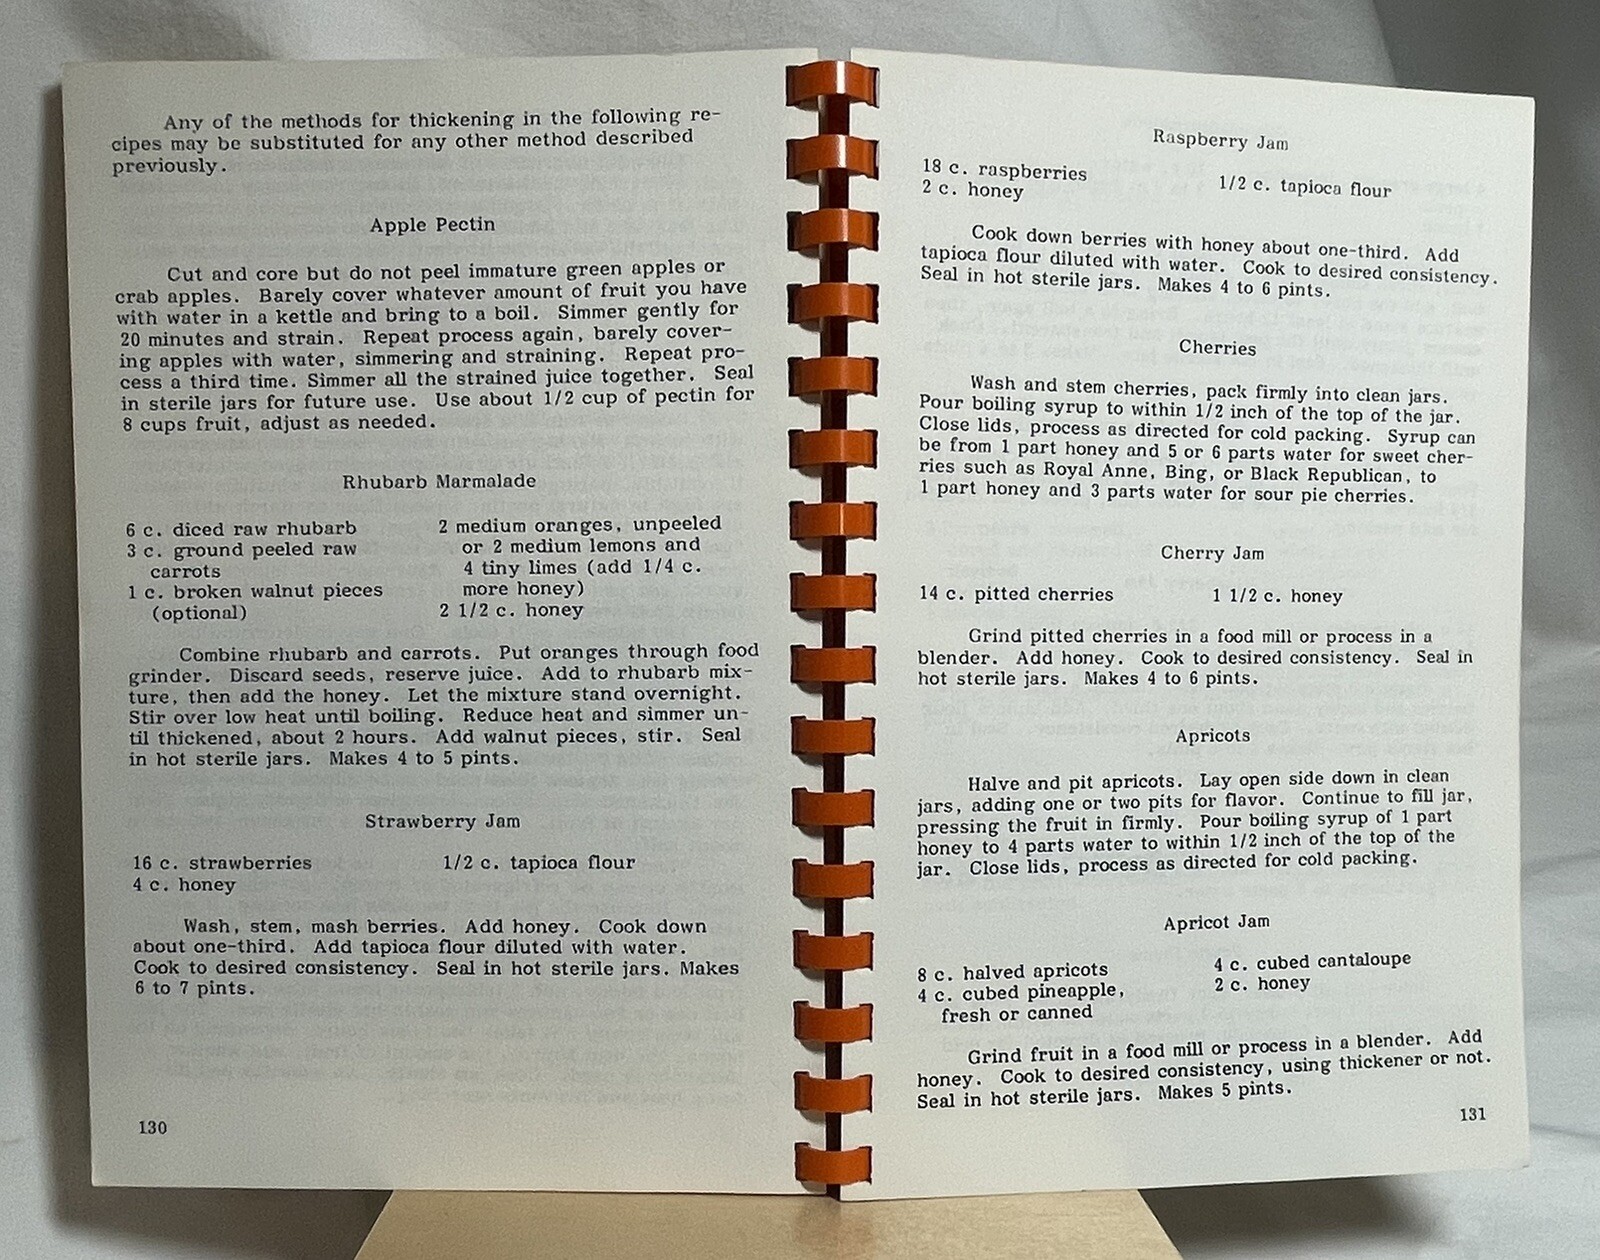 Any of the methods for thickening in the following re-
cipes may be substituted for any other method described
previously.
Apple Pectin
Cut and core but do not peel immature green apples or
crab apples. Barely cover whatever amount of fruit you have
with water in a kettle and bring to a boil. Simmer gently for
20 minutes and strain. Repeat process again, barely cover-
ing apples with water, simmering and straining. Repeat pro-
cess a third time. Simmer all the strained juice together. Seal
in sterile jars for future use. Use about 1/2 cup of pectin for
8 cups fruit, adjust as needed.
Rhubarb Marmalade
6 c. diced raw rhubarb
3 c. ground peeled raw
carrots
1 c. broken walnut pieces
(optional)
2 medium oranges, unpeeled
or 2 medium lemons and
4 tiny limes (add 1/4 c.
more honey)
2 1/2 c. honey
Combine rhubarb and carrots. Put oranges through food
grinder. Discard seeds, reserve juice. Add to rhubarb mix-
ture, then add the honey. Let the mixture stand overnight.
Stir over low heat until boiling. Reduce heat and simmer un-
til thickened, about 2 hours. Add walnut pieces, stir. Seal
in hot sterile jars. Makes 4 to 5 pints.
Strawberry Jam
16 c. strawberries
4 c. honey
1/2 c. tapioca flour
Wash, stem, mash berries. Add honey. Cook down
about one-third. Add tapioca flour diluted with water.
Cook to desired consistency. Seal in hot sterile jars. Makes
6 to 7 pints.
130
Raspberry Jam
18 c. raspberries
2 c. honey
1/2 c. tapioca flour
Cook down berries with honey about one-third. Add
tapioca flour diluted with water. Cook to desired consistency.
Seal in hot sterile jars. Makes 4 to 6 pints.
Cherries
Wash and stem cherries, pack firmly into clean jars.
Pour boiling syrup to within 1/2 inch of the top of the jar.
Close lids, process as directed for cold packing. Syrup can
be from 1 part honey and 5 or 6 parts water for sweet cher-
ries such as Royal Anne, Bing, or Black Republican, to
1 part honey and 3 parts water for sour pie cherries.
Cherry Jam
14 c. pitted cherries
1 1/2 c. honey
Grind pitted cherries in a food mill or process in a
blender. Add honey. Cook to desired consistency. Seal in
hot sterile jars. Makes 4 to 6 pints.
Apricots
Halve and pit apricots. Lay open side down in clean
jars, adding one or two pits for flavor. Continue to fill jar,
pressing the fruit in firmly. Pour boiling syrup of 1 part
honey to 4 parts water to within 1/2 inch of the top of the
jar. Close lids, process as directed for cold packing.
Apricot Jam
8 c. halved apricots
4 c. cubed pineapple,
fresh or canned
4 c. cubed cantaloupe
2 c. honey
Grind fruit in a food mill or process in a blender. Add
honey. Cook to desired consistency, using thickener or not.
Seal in hot sterile jars. Makes 5 pints.
131